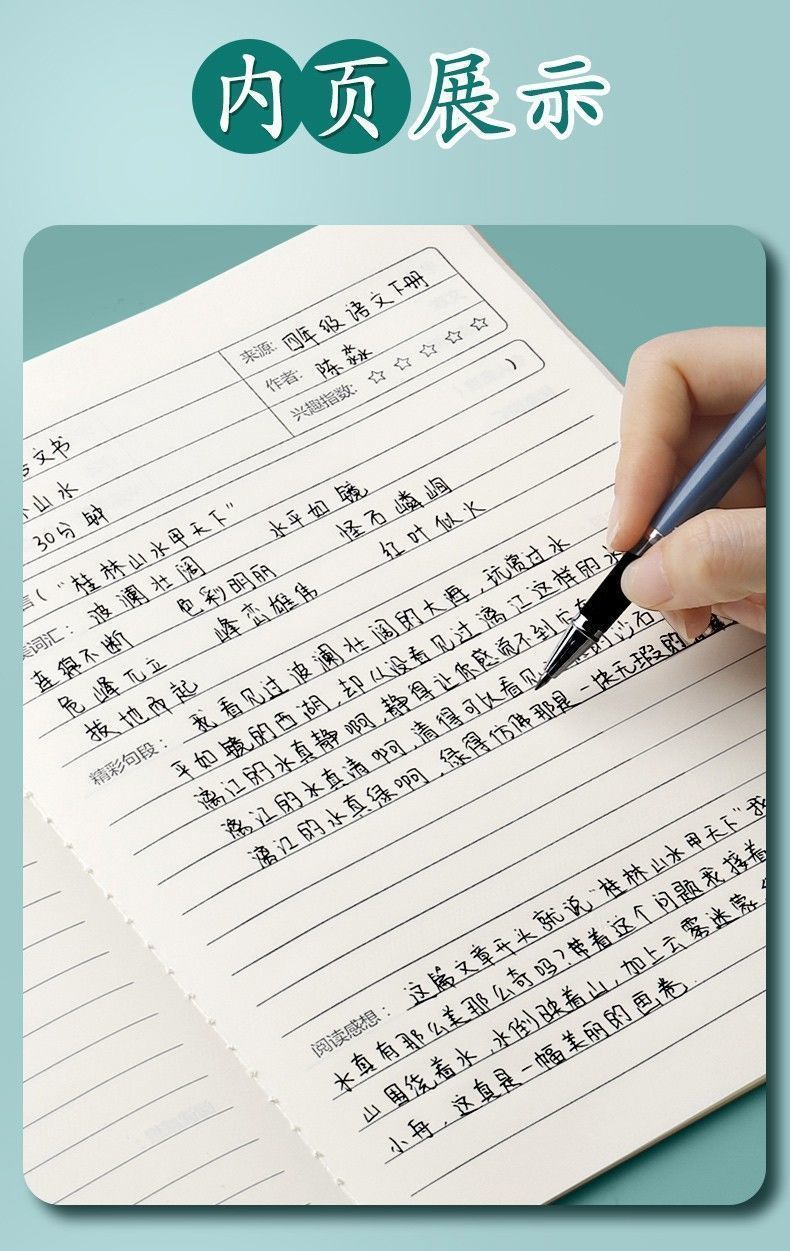 内页展示
来源: 四年级语文下册
作者: 陈淼
兴趣指数: ☆ ☆ ☆ ☆ ☆
文书
山水
30分钟
)
("桂林山水甲天下"
词汇: 波澜壮阔 水平如镜
连绵不断 色彩明丽 怪石嶙峋
危峰兀立 峰峦雄伟 红叶似火
拔地而起
精彩句段: 我看见过波澜壮阔的大海,玩赏过水
平如镜的西湖,却从没看见过漓江这样的水
漓江的水真静啊,静得让你感觉不到它在
漓江的水真清啊,清得可以看见 的沙石
漓江的水真绿啊,绿得仿佛那是一块无瑕的
阅读感想: 这篇文章开头就说"桂林山水甲天下"我
水真有那么美那么奇吗?带着这个问题我接着
山围绕着水,水倒映着山,加上云雾迷蒙
小舟,这真是一幅美丽的画卷.